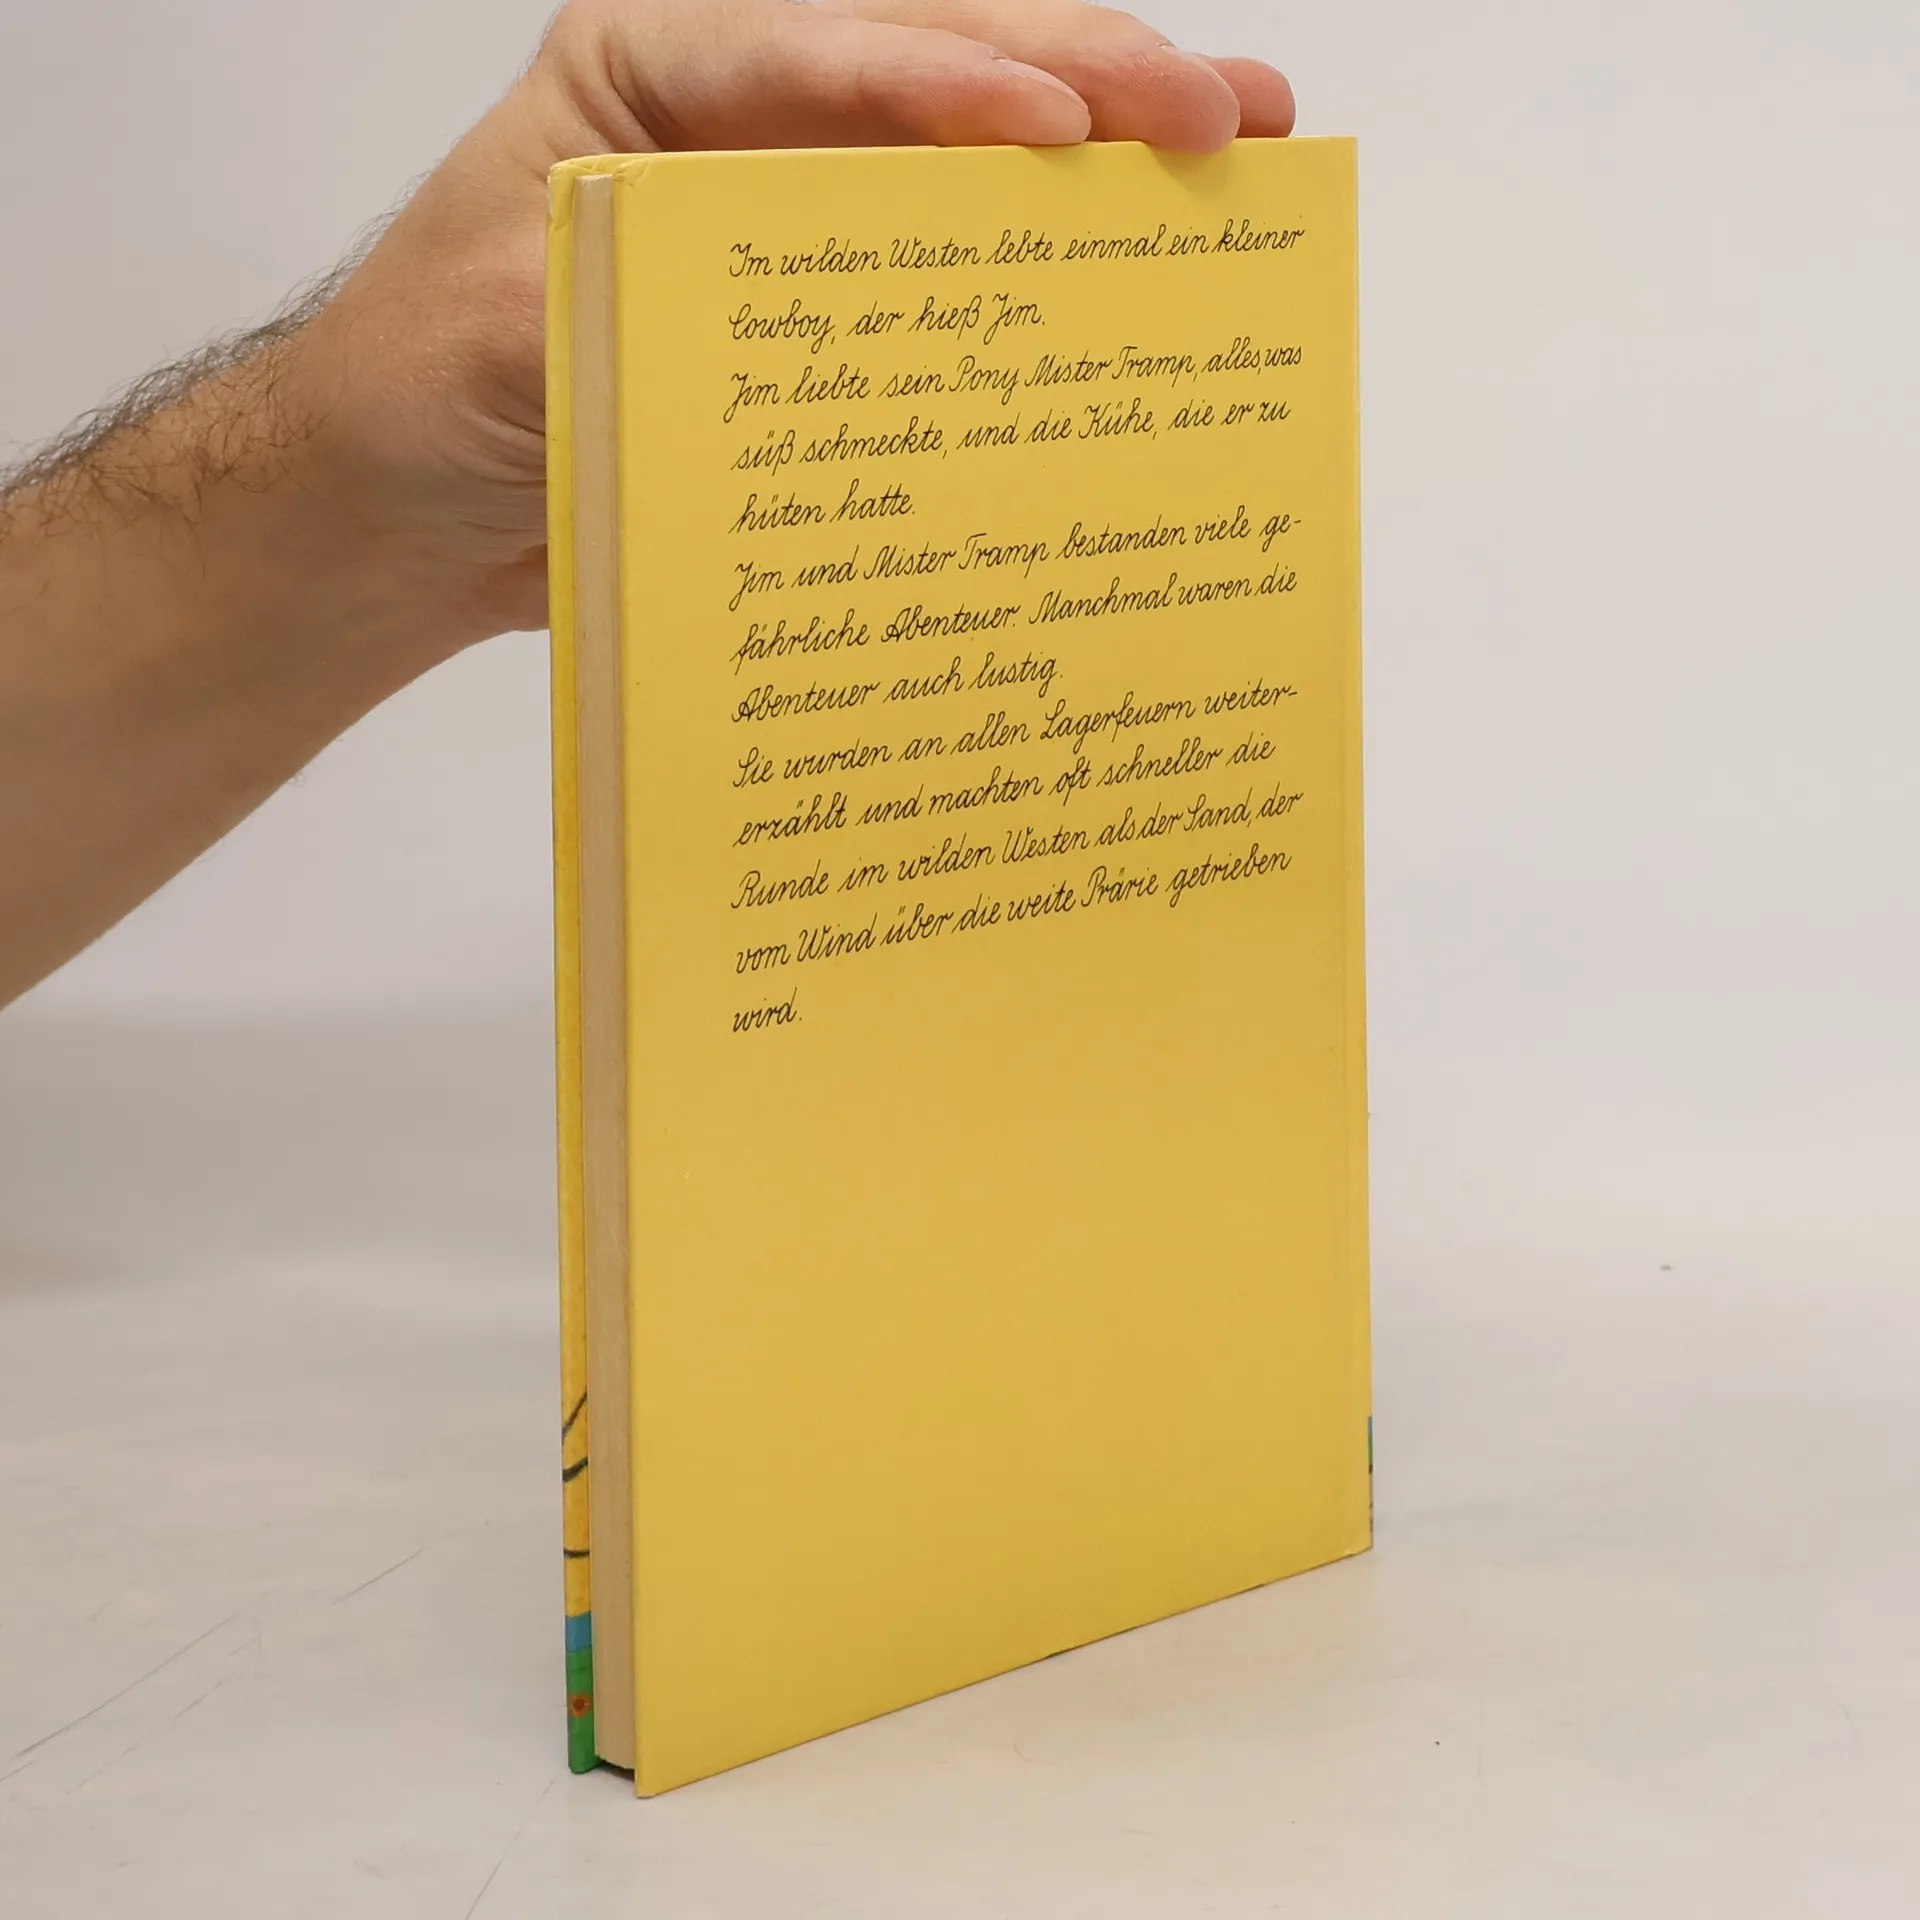 Im wilden Westen lebte einmal ein kleiner
Cowboy, der hieß Jim.
Jim liebte sein Pony Mister Tramp, alles, was
süß schmeckte, und die Kühe, die er zu
hüten hatte.
Jim und Mister Tramp bestanden viele ge-
fährliche Abenteuer. Manchmal waren die
Abenteuer auch lustig.
Sie wurden an allen Lagerfeuern weiter-
erzählt und machten oft schneller die
Runde im wilden Westen als der Sand, der
vom Wind über die weite Prärie getrieben
wird.